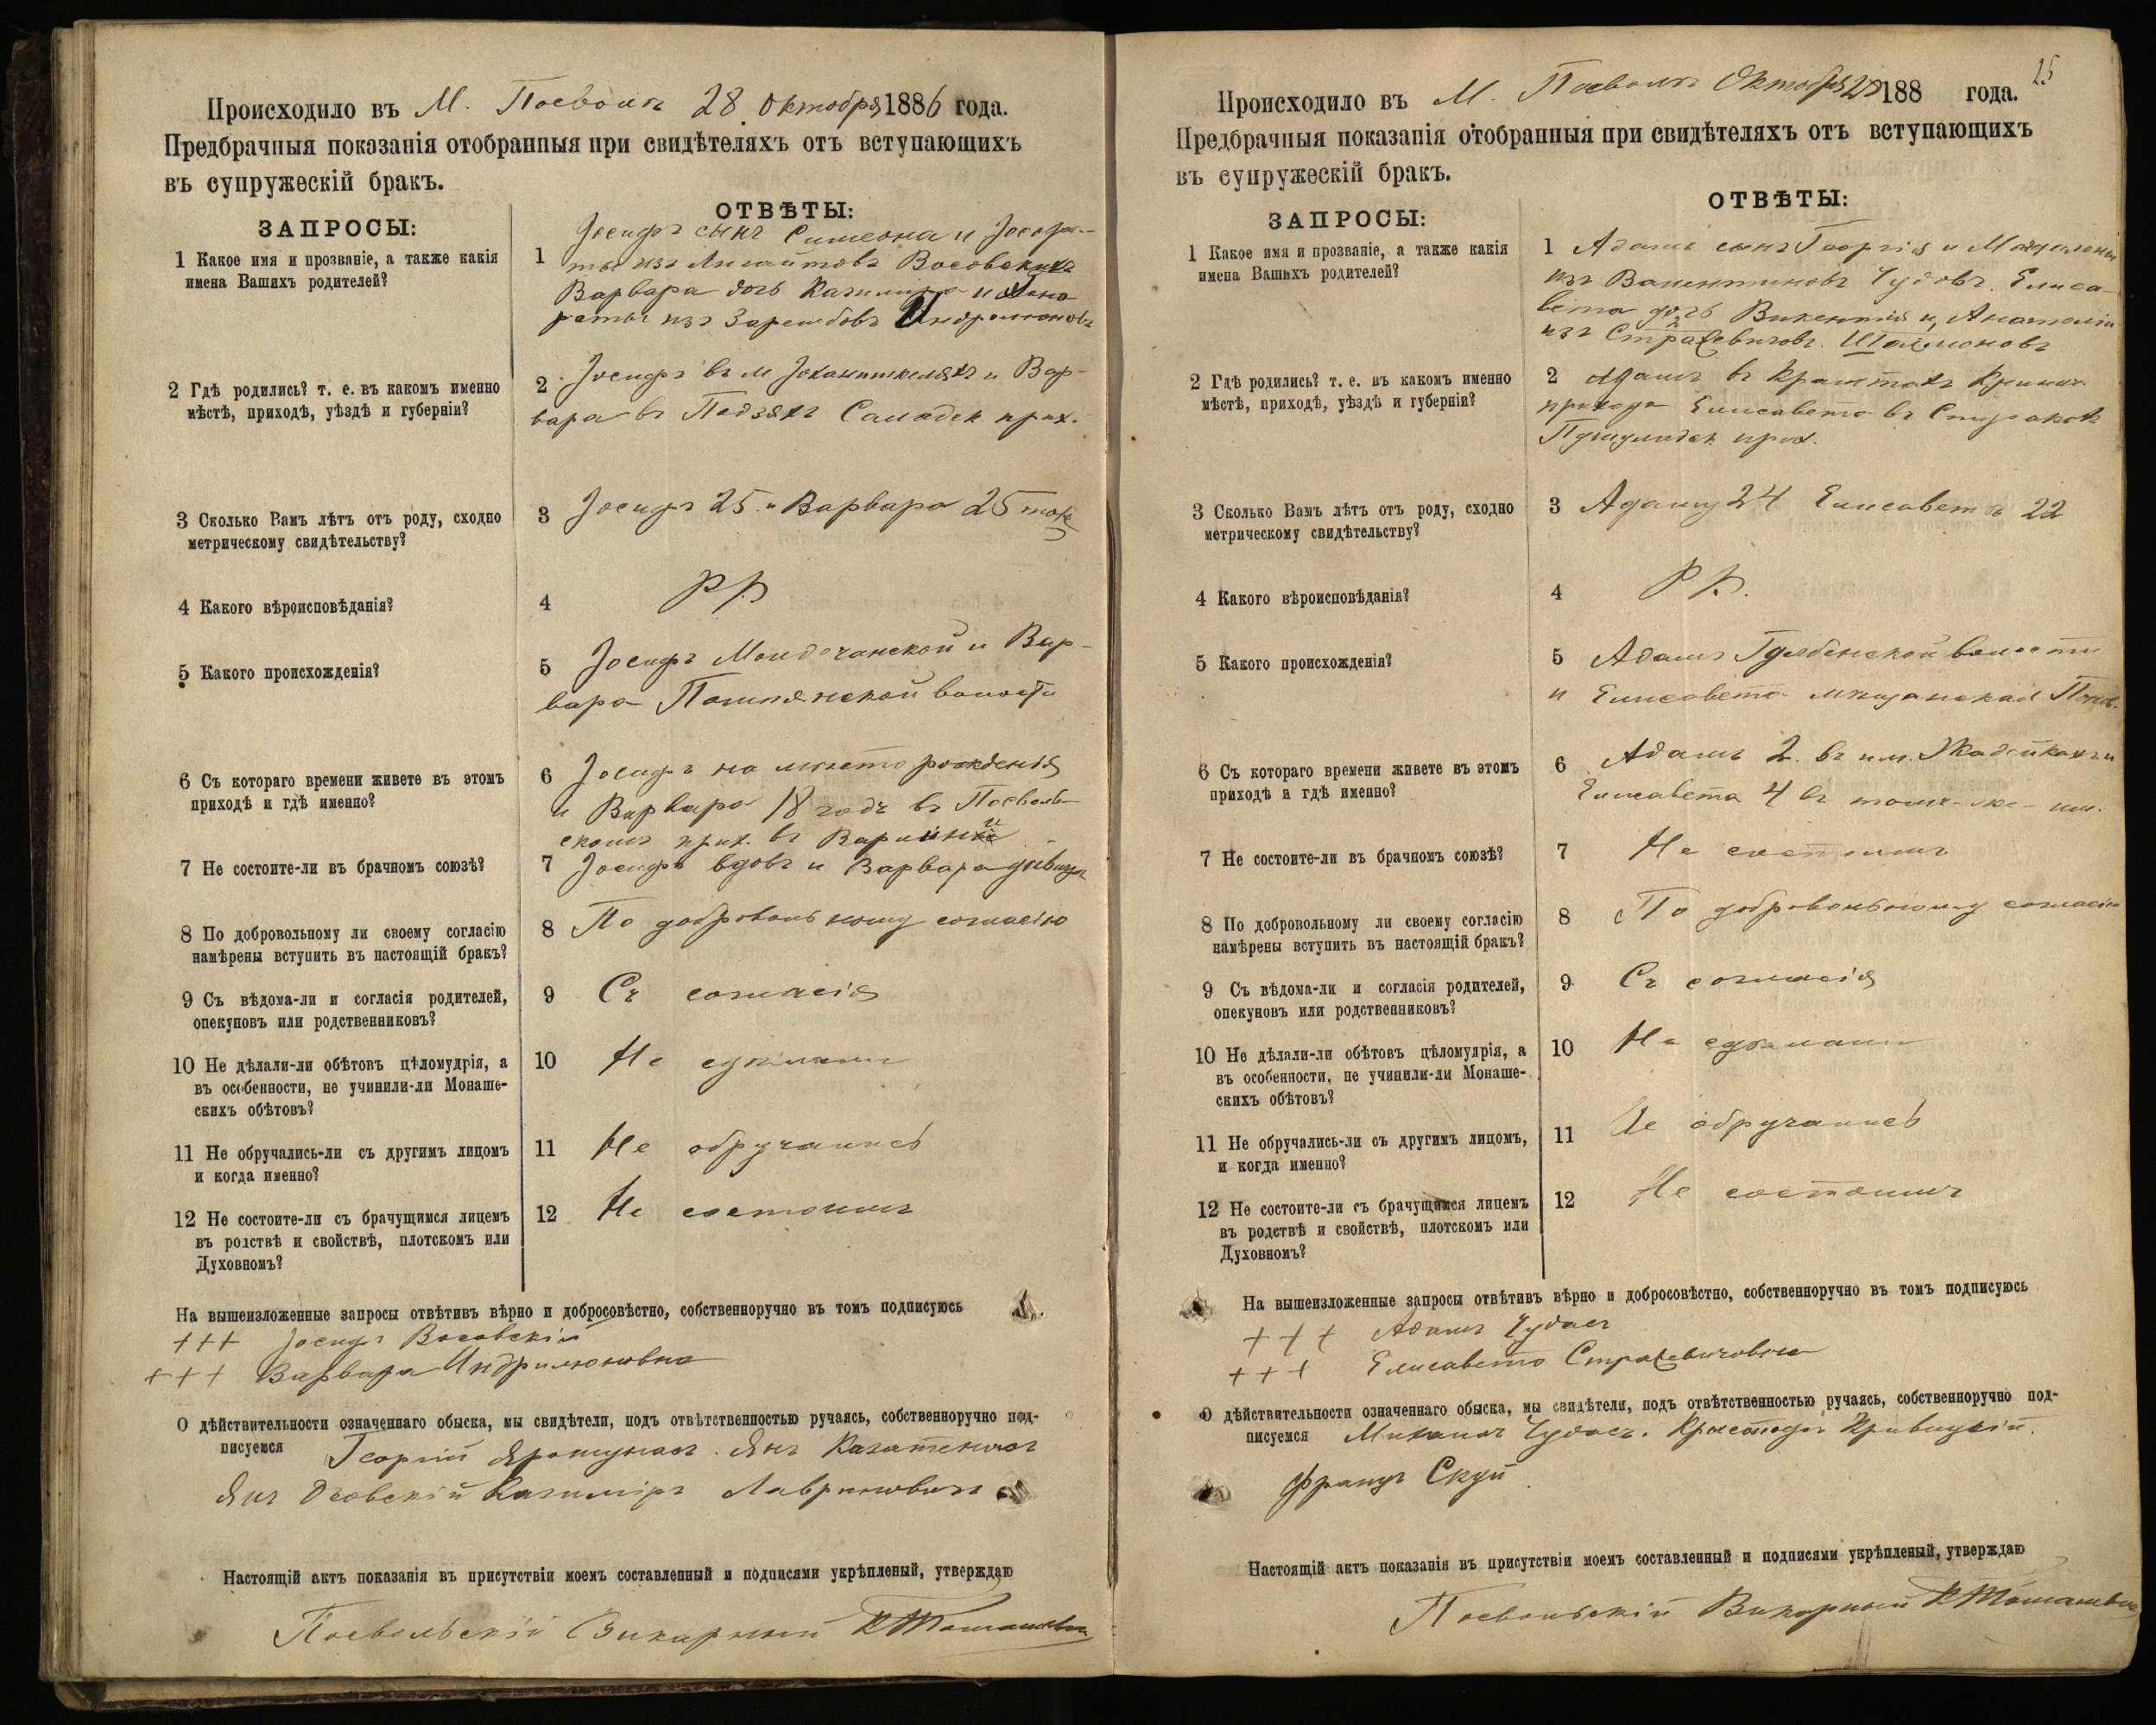 Происходило въ М. Посволѣ 28 Октября 1886 года.
Предбрачныя показанія отобранныя при свидѣтеляхъ отъ вступающихъ
въ супружескій бракъ.
ЗАПРОСЫ:
ОТВѢТЫ:
1 Какое имя и прозваніе, а также какія
имена Вашихъ родителей?
1 Іосифъ сынъ Симеона и Іосафа-
ты изъ
Варвара дочь Казимира и
изъ
2 Гдѣ родились? т. е. въ какомъ именно
мѣстѣ, приходѣ, уѣздѣ и губерніи?
2 Іосифъ въ м. Іоханишкеляхъ и Вар-
вара въ Салодск. прих.
3 Сколько Вамъ лѣтъ отъ роду, сходно
метрическому свидѣтельству?
3 Іосифъ 25 и Варвара 25 тож
4 Какого вѣроисповѣданія?
4 Р.К.
5 Какого происхожденія?
5 Іосифъ и Вар-
вара волости
6 Съ котораго времени живете въ этомъ
приходѣ и гдѣ именно?
6 Іосифъ на мѣстѣ рожденія
и Варвара 18 годъ въ Посволь-
скомъ прих. въ
7 Не состоите-ли въ брачномъ союзѣ?
7 Іосифъ вдовъ и Варвара дѣвица
8 По добровольному ли своему согласію
намѣрены вступить въ настоящій бракъ?
8 По добровольному согласію
9 Съ вѣдома-ли и согласія родителей,
опекуновъ или родственниковъ?
9 Съ согласія
10 Не дѣлали-ли обѣтовъ цѣломудрія, а
въ особенности, не учинили-ли Монаше-
скихъ обѣтовъ?
10 Не сдѣлали
11 Не обручались-ли съ другимъ лицомъ
и когда именно?
11 Не обручались
12 Не состоите-ли съ брачущимся лицемъ
въ родствѣ и свойствѣ, плотскомъ или
Духовномъ?
12 Не состоимъ
На вышеизложенные запросы отвѣтивъ вѣрно и добросовѣстно, собственноручно въ томъ подписуюсь
+++ Іосифъ Восовскій
+++ Варвара Индрилюновна
О дѣйствительности означеннаго обыска, мы свидѣтели, подъ отвѣтственностью ручаясь, собственноручно под-
писуемся Георгій Янъ
Янъ Казиміръ Лавриновичъ
Настоящій актъ показанія въ присутствіи моемъ составленный и подписями укрѣпленый, утверждаю
Посвольскій Викарный
25
Происходило въ М. Посволѣ Октября 28 188 года.
Предбрачныя показанія отобранныя при свидѣтеляхъ отъ вступающихъ
въ супружескій бракъ.
ЗАПРОСЫ:
ОТВѢТЫ:
1 Какое имя и прозваніе, а также какія
имена Вашихъ родителей?
1 Адамъ сынъ Георгія и Магдалены
изъ Валентиновъ Чудовъ. Елиса-
вета дочь Викентія и
изъ Страхевичовъ
2 Гдѣ родились? т. е. въ какомъ именно
мѣстѣ, приходѣ, уѣздѣ и губерніи?
2 Адамъ въ
прихода Елисавета въ
прих.
3 Сколько Вамъ лѣтъ отъ роду, сходно
метрическому свидѣтельству?
3 Адаму 24 Елисаветѣ 22
4 Какого вѣроисповѣданія?
4 Р.К.
5 Какого происхожденія?
5 Адамъ волости
и Елисавета мѣщанская
6 Съ котораго времени живете въ этомъ
приходѣ и гдѣ именно?
6 Адамъ 2 въ им. и
Елисавета 4 въ томъ-же им.
7 Не состоите-ли въ брачномъ союзѣ?
7 Не состоимъ
8 По добровольному ли своему согласію
намѣрены вступить въ настоящій бракъ?
8 По добровольному согласію
9 Съ вѣдома-ли и согласія родителей,
опекуновъ или родственниковъ?
9 Съ согласія
10 Не дѣлали-ли обѣтовъ цѣломудрія, а
въ особенности, не учинили-ли Монаше-
скихъ обѣтовъ?
10 Не сдѣлали
11 Не обручались-ли съ другимъ лицомъ,
и когда именно?
11 Не обручались
12 Не состоите-ли съ брачущимся лицемъ
въ родствѣ и свойствѣ, плотскомъ или
Духовномъ?
12 Не состоимъ
На вышеизложенные запросы отвѣтивъ вѣрно и добросовѣстно, собственноручно въ томъ подписуюсь
+++ Адамъ Чудасъ
+++ Елисавета Страхевичовна
О дѣйствительности означеннаго обыска, мы свидѣтели, подъ отвѣтственностью ручаясь, собственноручно под-
писуемся Михаилъ Чудасъ. Кривицкій.
Францъ Скуй
Настоящій актъ показанія въ присутствіи моемъ составленный и подписями укрѣпленый, утверждаю
Посвольскій Викарный